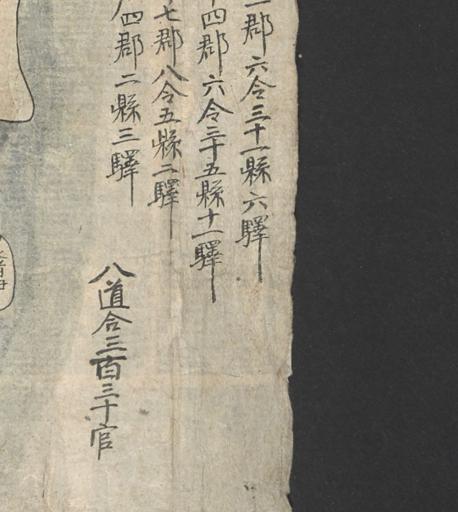 郡六令三十一縣六驛
四郡六令三十五縣十一驛
七郡八令五縣二驛
四郡二縣三驛
八道合三百三十官